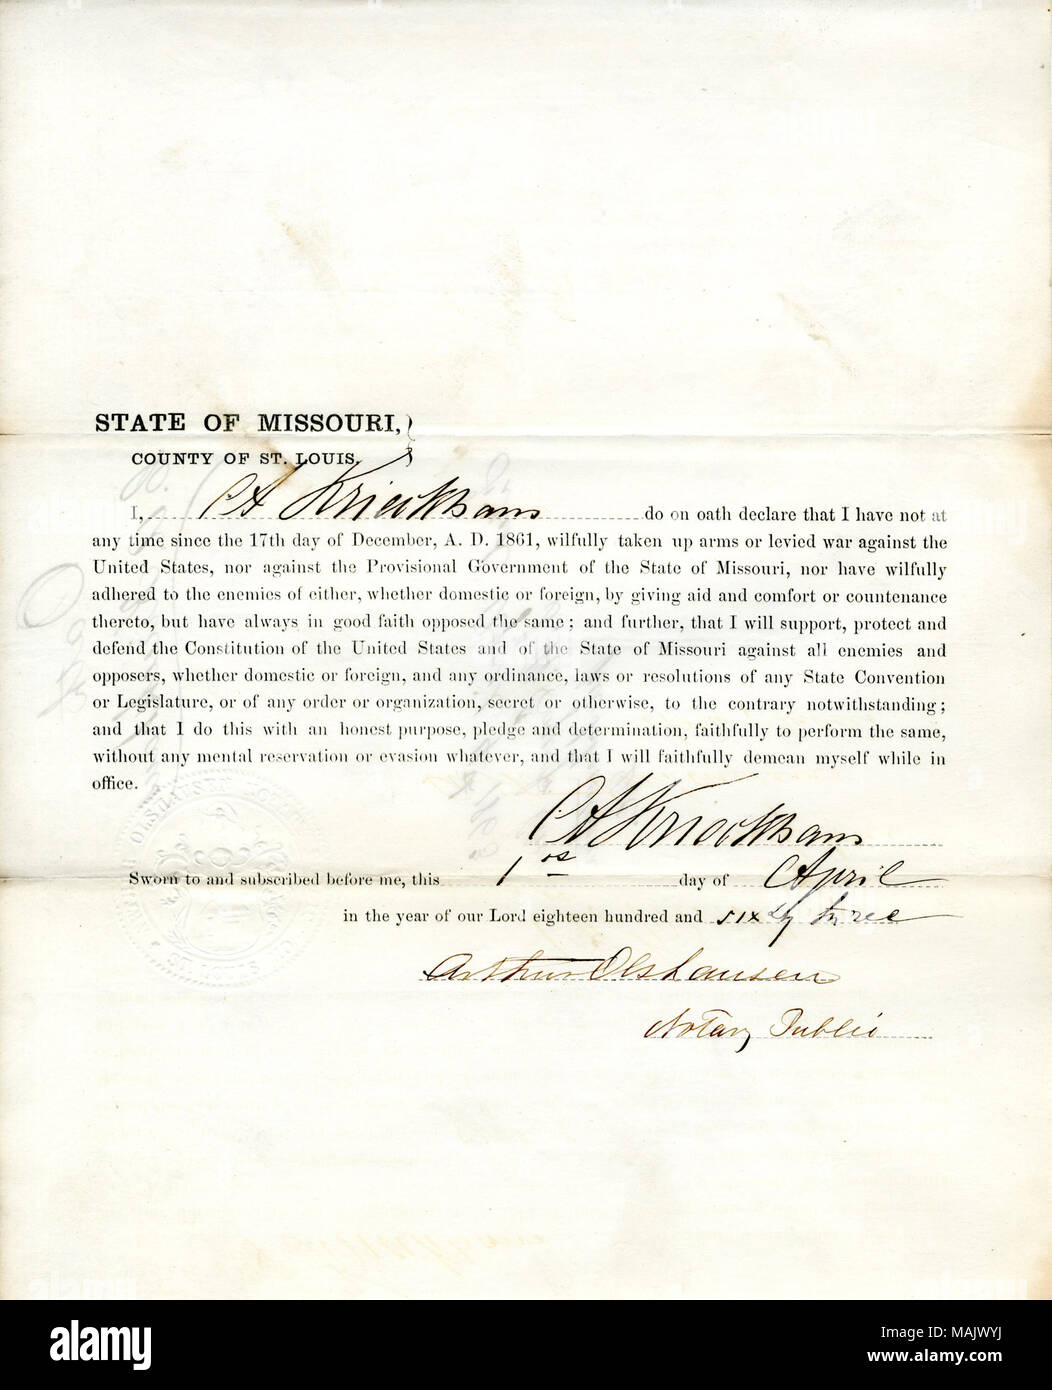 STATE OF MISSOURI,
COUNTY OF ST. LOUIS.
I, CA Krieckhaus do on oath declare that I have not at
any time since the 17th day of December, A. D. 1861, wilfully taken up arms or levied war against the
United States, nor against the Provisional Government of the State of Missouri, nor have wilfully
adhered to the enemies of either, whether domestic or foreign, by giving aid and comfort or countenance
thereto, but have always in good faith opposed the same; and further, that I will support, protect and
defend the Constitution of the United States and of the State of Missouri against all enemies and
opposers, whether domestic or foreign, and any ordinance, laws or resolutions of any State Convention
or Legislature, or of any order or organization, secret or otherwise, to the contrary notwithstanding;
and that I do this with an honest purpose, pledge and determination, faithfully to perform the same,
without any mental reservation or evasion whatever, and that I will faithfully demean myself while in
office.
CA Krieckhaus
Sworn to and subscribed before me, this 1 day of April
in the year of our Lord eighteen hundred and sixty three
Arthur Olshausen
Notary Public
alamy
Image ID: MAJWYJ
www.alamy.com